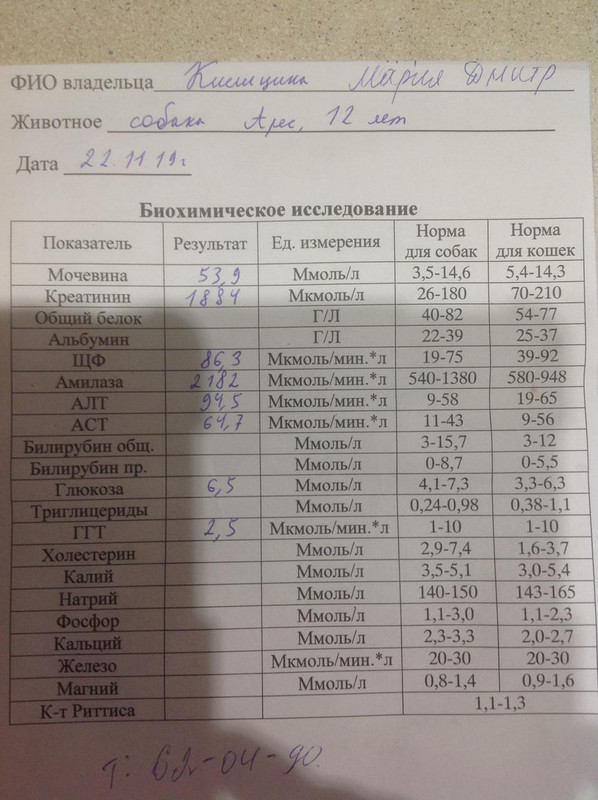 ФИО владельца Кислицина Мария Дмитр
Животное собака Арес, 12 лет
Дата 22.11 19г
Биохимическое исследование
Показатель Результат Ед. измерения Норма для собак Норма для кошек
Мочевина 53,9 Ммоль/л 3,5-14,6 5,4-14,3
Креатинин 1884 Мкмоль/л 26-180 70-210
Общий белок Г/Л 40-82 54-77
Альбумин Г/Л 22-39 25-37
ЩФ 86,3 Мкмоль/мин.*л 19-75 39-92
Амилаза 2182 Мкмоль/мин.*л 540-1380 580-948
АЛТ 94,5 Мкмоль/мин.*л 9-58 19-65
АСТ 64,7 Мкмоль/мин.*л 11-43 9-56
Билирубин общ. Ммоль/л 3-15,7 3-12
Билирубин пр. Ммоль/л 0-8,7 0-5,5
Глюкоза 6,5 Ммоль/л 4,1-7,3 3,3-6,3
Триглицериды Ммоль/л 0,24-0,98 0,38-1,1
ГГТ 2,5 Мкмоль/мин.*л 1-10 1-10
Холестерин Ммоль/л 2,9-7,4 1,6-3,7
Калий Ммоль/л 3,5-5,1 3,0-5,4
Натрий Ммоль/л 140-150 143-165
Фосфор Ммоль/л 1,1-3,0 1,1-2,3
Кальций Ммоль/л 2,3-3,3 2,0-2,7
Железо Мкмоль/мин.*л 20-30 20-30
Магний Ммоль/л 0,8-1,4 0,9-1,6
К-т Риттиса 1,1-1,3
т: 62-04-90.